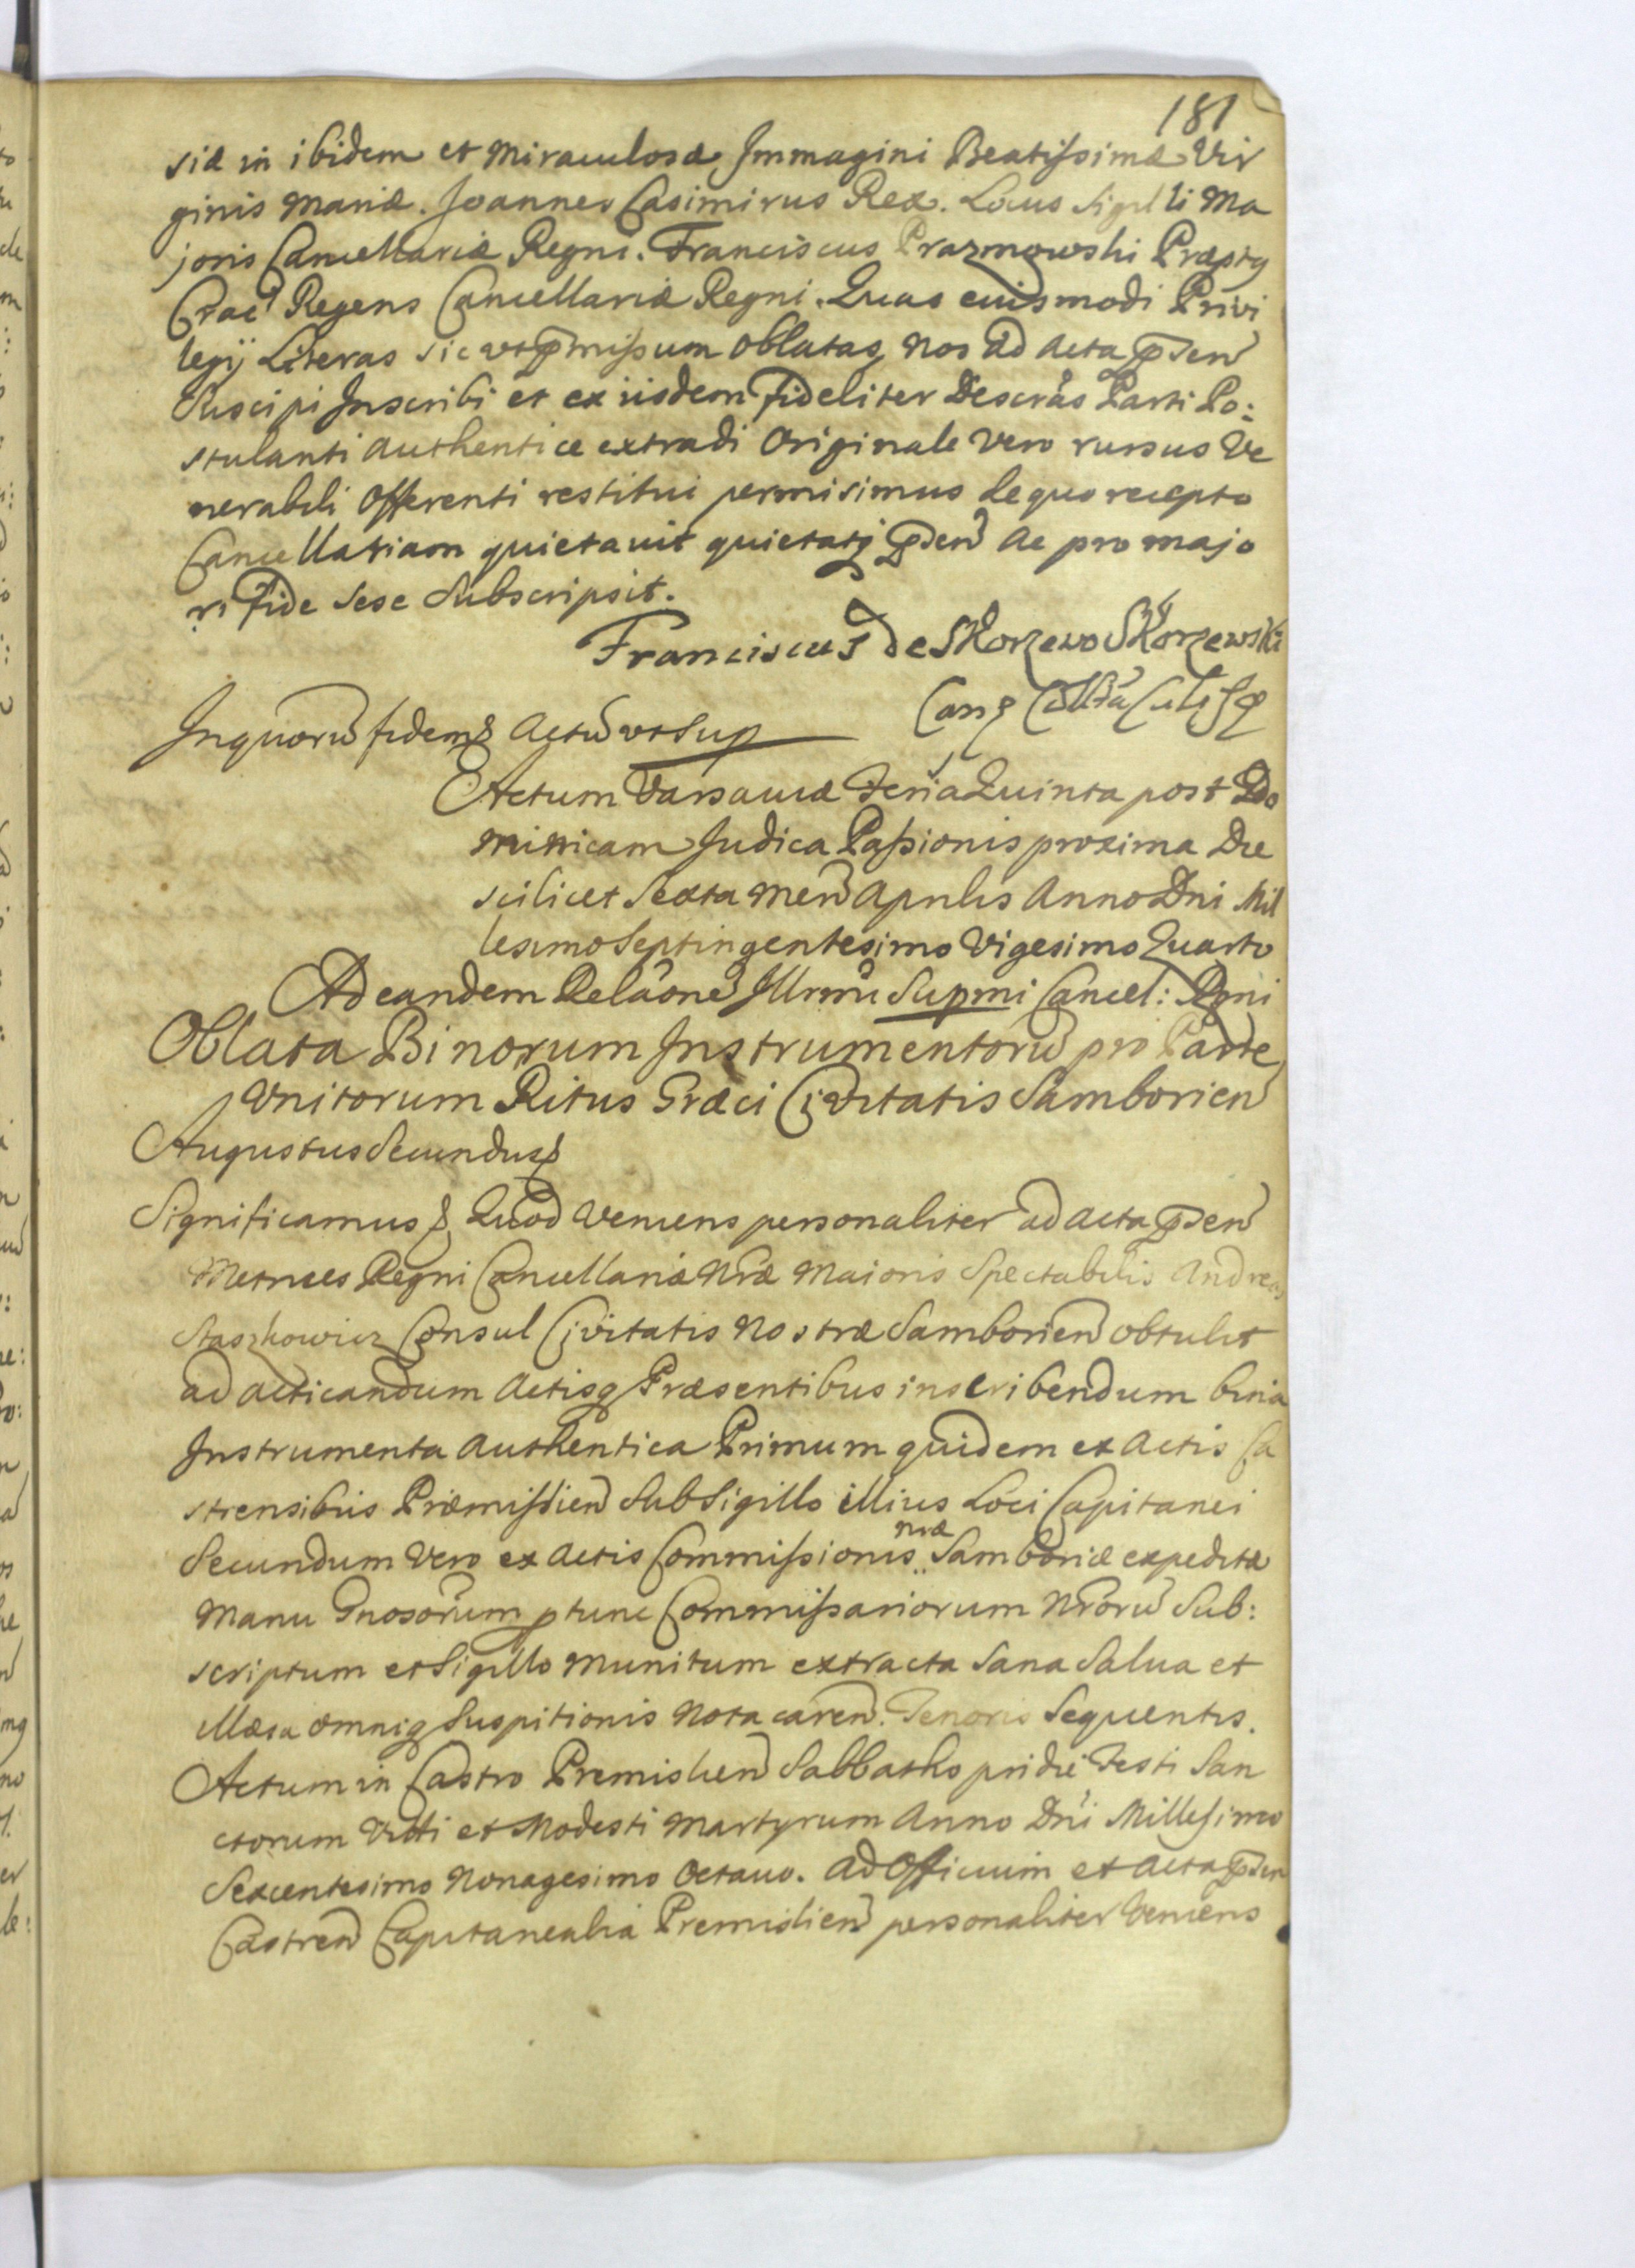 181
siæ in ibidem et Miraculosæ Immagini Beatissimæ Vir
ginis Mariæ. Joannes Casimirus Rex. Locus Sigilli Ma
joris Cancellariæ Regni. Franciscus Prazmowski Præptg
Crac Regens Cancellariæ Regni. Quas eiusmodi Privi
legij Literas sic ut pmissum oblatas, Nos ad Acta pden
Suscipi Inscribi et ex iisdem fideliter Descrãs Parti Po:
stulanti Authentice extradi Originale Vero rursus Ve
nerabili Offerenti restitui permisimus de quo recepto
Cancellariam quietavit quietatq pden Ac pro majo
ri fide sese Subscripsit.
Franciscus de Skorzewo Skorzewski
Can
In quorũ fidem & Actũ ut Sup
Actum Varsaviæ Feria Quinta post Do
minicam Judica Passionis proxima Die
scilicet Sexta Men Aprilis Anno Dni Mil
lesimo Septingentesimo Vigesimo Quarto
Ad eandem Relãone Illrmi Supmi Cancel: Rgni
Oblata Binorum Instrumentorũ pro Parte
Unitorum Ritus Græci Civitatis Samborien
Augustus Secundus &
Significamus & Quod Veniens personaliter ad Acta pden
Metrices Regni Cancellariæ Nræ Maioris Spectabilis Andreas
Staszkowicz Consul Civitatis Nostræ Samborien obtulit
ad acticandum Actisq Præsentibus inscribendum bina
Instrumenta Authentica Primum quidem ex Actis Ca
strensibus Præmislien Sub Sigillo illius Loci Capitanei
Secundum Vero ex Actis Commissionis nræ Samboriæ expeditæ
Manu Gnosorum ptunc Commissariorum Nrorũ Sub:
scriptum et Sigillo Munitum extracta Sana Salva et
illæsa omniq Suspitionis Nota caren. Tenoris Sequentis.
Actum in Castro Premislien Sabbatho pridie Festi San
ctorum Viti et Modesti Martyrum Anno Dni Millesimo
Sexcentesimo Nonagesimo Octavo. Ad Officium et Acta pden
Castren Capitanealia Premislien personaliter Veniens